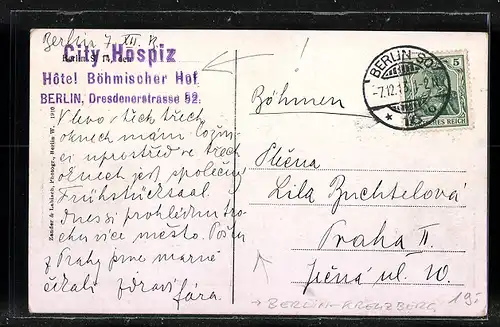 Berlin 7. XII.
City Hospiz
Hôtel Böhmischer Hof
BERLIN, Dresdenerstrasse 52.
Vlevo v těch třech
oknech mám ložnici
uprostřed ve třech
oknech jest společný
Frühstücksaal
dnes si prohlédnu tro-
chu více město. Poštu
z Prahy jsme marně
čekali zdraví
Jára.
Zander & Labisch, Photogr., Berlin W. 1910
!
Böhmen
BERLIN SO
-7.12.1
5
DEUTSCHES REICH
Slečna
Lila Buchtelová
Praha II.
Ječná ul. 10.
→ BERLIN-KREUZBERG
19: